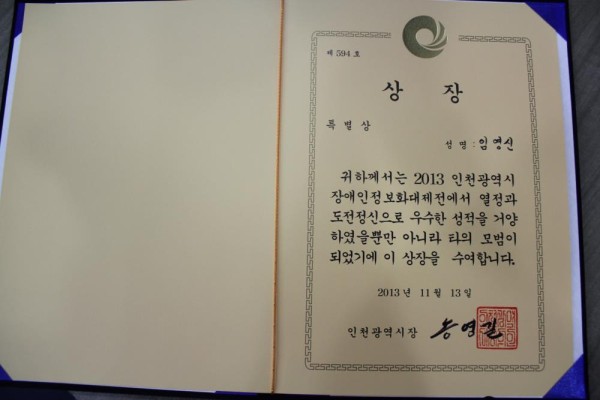 제 594 호
상 장
특별상
성명 : 임영신
귀하께서는 2013 인천광역시
장애인정보화대제전에서 열정과
도전정신으로 우수한 성적을 거양
하였을뿐만 아니라 타의 모범이
되었기에 이 상장을 수여합니다.
2013 년 11 월 13 일
인천광역시장 송영길